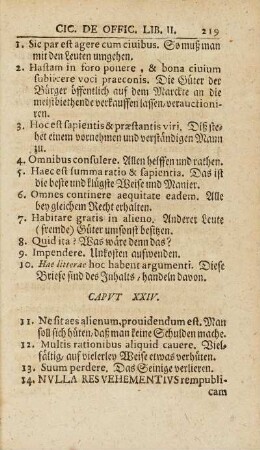 CIC. DE OFFIC. LIB. II. 219
1. Sic par est agere cum ciuibus. So muß man
mit den Leuten umgehen.
2. Hastam in foro ponere, & bona ciuium
subiicere voci praeconis. Die Güter der
Bürger öffentlich auf dem Marckte an die
meistbiethende verkauffen lassen, verauctioni-
ren.
3. Hoc est sapientis & præstantis viri. Diß ste-
het einem vornehmen und verständigen Mann
zu.
4. Omnibus consulere. Allen helffen und rathen.
5. Haec est summa ratio & sapientia. Das ist
die beste und klügste Weise und Manier.
6. Omnes continere aequitate eadem. Alle
bey gleichem Recht erhalten.
7. Habitare gratis in alieno. Anderer Leute
(fremde) Güter umsonst besitzen.
8. Quid ita? Was wäre denn das?
9. Impendere. Unkosten aufwenden.
10. Hae litterae hoc habent argumenti. Diese
Briefe sind des Inhalts, handeln davon.
CAPVT XXIV.
11. Ne sit aes alienum, prouidendum est. Man
soll sich hüten, daß man keine Schulden mache.
12. Multis rationibus aliquid cauere. Viel-
fältig, auf vielerley Weise etwas verhüten.
13. Suum perdere. Das Seinige verlieren.
14. NVLLA RES VEHEMENTIVS rempubli-
cam